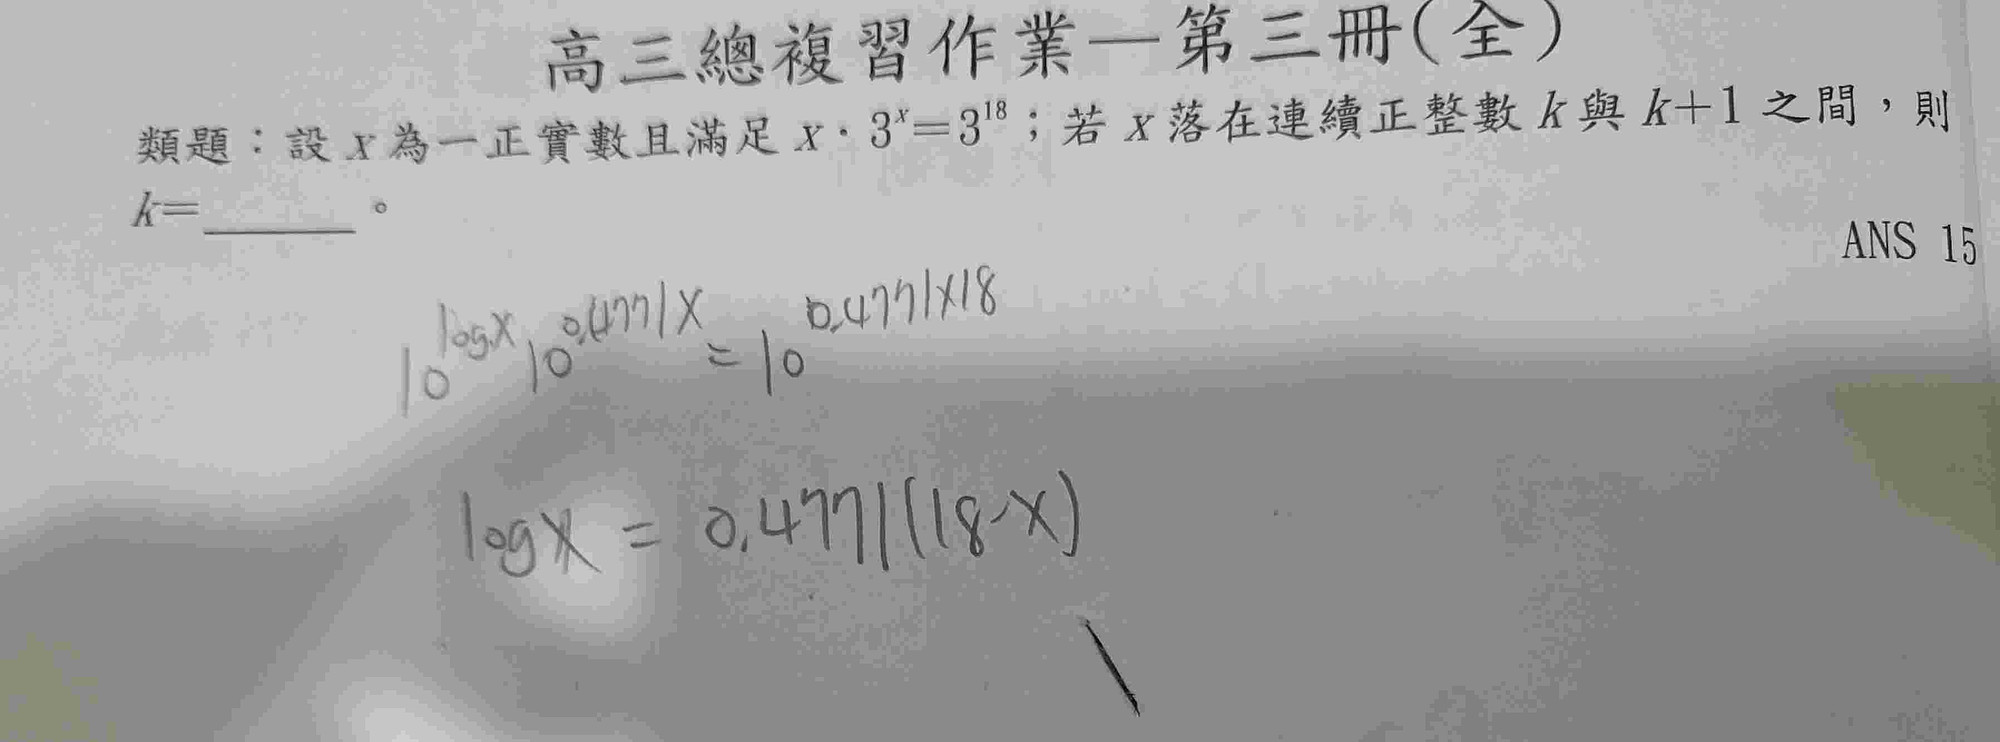 高三總複習作業—第三冊(全)
類題：設 x 為一正實數且滿足 x · 3^x=3^18；若 x 落在連續正整數 k 與 k+1 之間，則
k=______。
ANS 15
10^logx 10^0.4771x = 10^0.4771×18
logx = 0.4771(18-x)